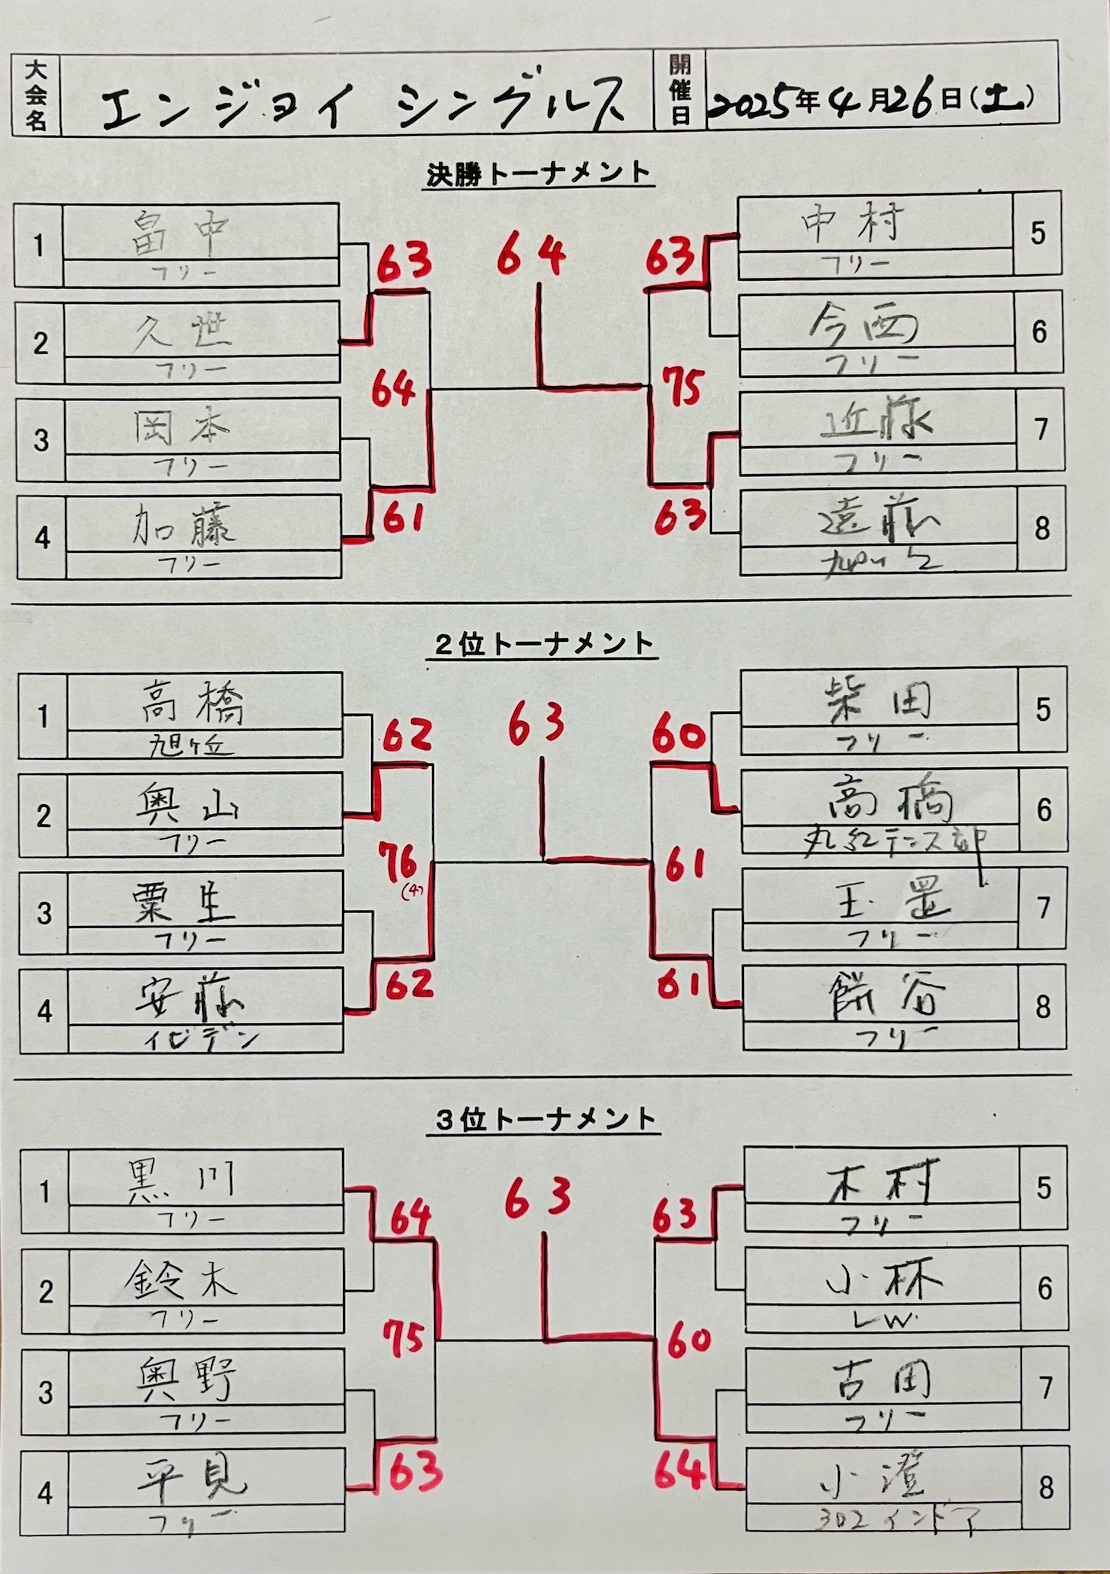 大会名 エンジョイ シングルス 開催日 2025年4月26日(土)
決勝トーナメント
1 畠中 フリー
2 久世 フリー
3 岡本 フリー
4 加藤 フリー
63
64
61
64
63
75
63
中村 フリー 5
今西 フリー 6
近藤 フリー 7
遠藤 8
2位トーナメント
1 高橋 旭ヶ丘
2 奥山 フリー
3 粟生 フリー
4 安藤 イビデン
62
76
(4)
62
63
60
61
61
柴田 フリー 5
高橋 丸紅テニス部 6
玉置 フリー 7
餅谷 フリー 8
3位トーナメント
1 黒川 フリー
2 鈴木 フリー
3 奥野 フリー
4 平見 フリー
64
75
63
63
63
60
64
木村 フリー 5
小林 LW. 6
古田 フリー 7
小澄 302インドア 8